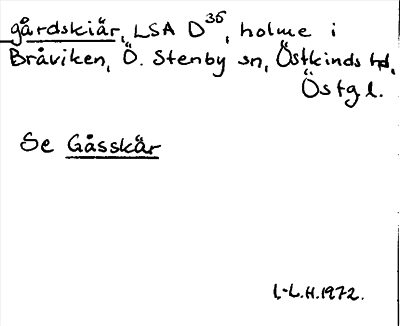 gårdskiär, LSA D36, holme i
Bråviken, Ö. Stenby sn, Östkinds hd,
Östgl.
Se Gåsskär
I.-L.H.1972.